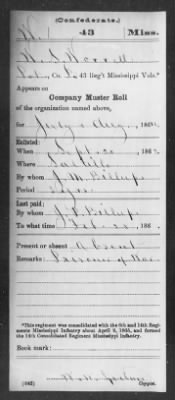 (Confederate.)
W. 43 Miss.
W. S. Worrell
Co. 43 Reg't Mississippi Vols.*
Appears on
Company Muster Roll
of the organization named above,
for July & Aug, 186
Enlisted:
When Sept. 20, 186
Where
By whom J. M. Billups
Period 3 yrs.
Last paid:
By whom J. M. Billups
To what time 186
Present or absent Absent
Remarks: Prisoner of War
*This regiment was consolidated with the 6th and 14th Regiments
Mississippi Infantry about April 9, 1865, and formed
the 14th Consolidated Regiment Mississippi Infantry.
Book mark:
(642)
Copyist.